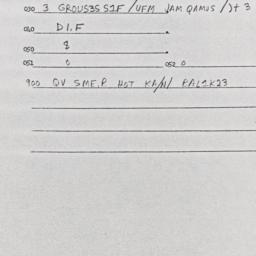 030 3 GROUS3S S1F / UFM JAM QAMUS / Jt 3
040 DI.F
050 8
051 0 052 0
900 QV SME.P HOT KA/N/ RAL1K23